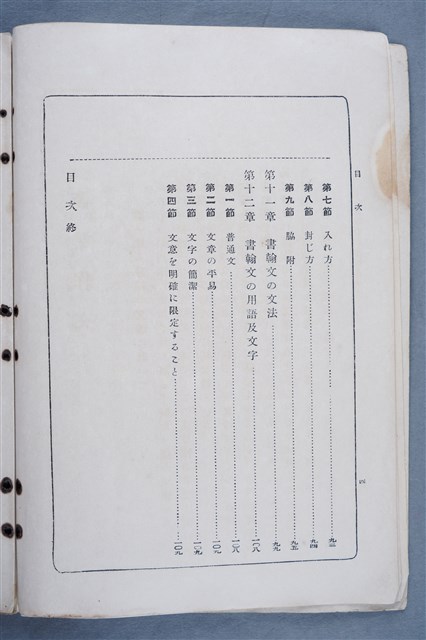 目次
第七節 入れ方
第八節 封じ方 九四
第九節 脇附 九五
第十一章 書翰文の文法 九九
第十二章 書翰文の用語及文字 一〇八
第一節 普通文 一〇八
第二節 文章の平易 一〇九
第三節 文字の簡潔 一〇九
第四節 文意を明確に限定すること 一〇九
目次終
四